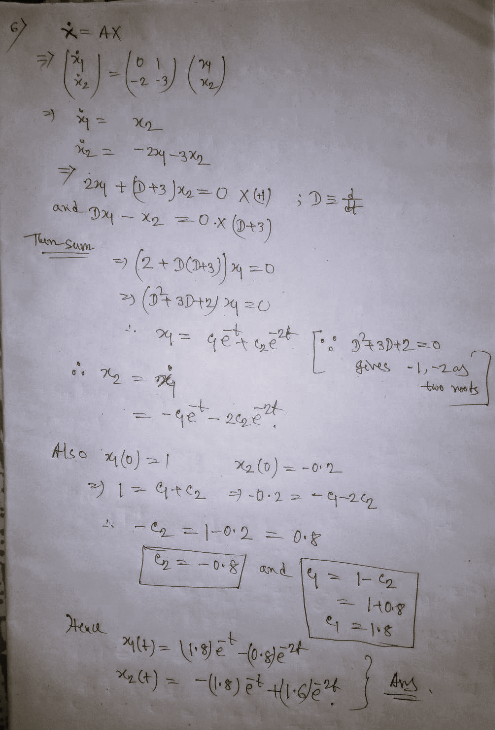 6) ẋ = AX
⇒ (ẋ₁ ẋ₂) = (0 1 -2 -3) (x₁ x₂)
⇒ ẋ₁ = x₂
ẋ₂ = -2x₁ - 3x₂
⇒ 2x₁ + (D+3)x₂ = 0 × (+1) ; D ≡ d/dt
and Dx₁ - x₂ = 0 × (D+3)
Then sum
⇒ (2 + D(D+3)) x₁ = 0
⇒ (D² + 3D + 2) x₁ = 0
∴ x₁ = c₁e^-t + c₂e^-2t [∵ D² + 3D + 2 = 0
gives -1, -2 as
two roots]
∴ x₂ = ẋ₁
= -c₁e^-t - 2c₂e^-2t.
Also x₁(0) = 1 x₂(0) = -0.2
⇒ 1 = c₁ + c₂ ⇒ -0.2 = -c₁ - 2c₂
∴ -c₂ = 1 - 0.2 = 0.8
c₂ = -0.8 and c₁ = 1 - c₂
= 1 + 0.8
c₁ = 1.8
Hence
x₁(t) = (1.8)e^-t - (0.8)e^-2t
x₂(t) = -(1.8)e^-t + (1.6)e^-2t } Ans.